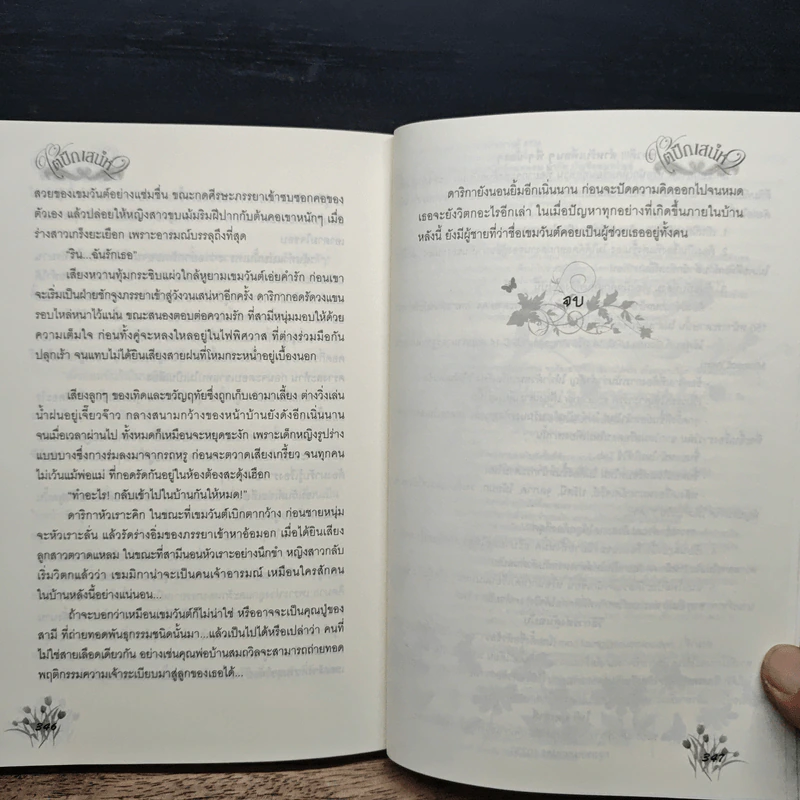 ใต้ปีกเสน่หา
สวยของเขมวันต์อย่างแช่มชื่น ขณะกดศีรษะภรรยาเข้าซบซอกคอของ
ตัวเอง แล้วปล่อยให้หญิงสาวขบเม้มริมฝีปากกับต้นคอเขาหนักๆ เมื่อ
ร่างสาวเกร็งยะเยือก เพราะอารมณ์บรรลุถึงที่สุด
“ริน...ฉันรักเธอ”
เสียงหวานทุ้มกระซิบแผ่วใกล้หูยามเขมวันต์เอ่ยคำรัก ก่อนเขา
จะเริ่มเป็นฝ่ายชักจูงภรรยาเข้าสู่วังวนเสน่หาอีกครั้ง ดาริกากอดรัดวงแขน
รอบไหล่หนาไว้แน่น ขณะสนองตอบต่อความรัก ที่สามีหนุ่มมอบให้ด้วย
ความเต็มใจ ก่อนทั้งคู่จะหลงใหลอยู่ในไฟพิศวาส ที่ต่างร่วมมือกัน
ปลุกเร้า จนแทบไม่ได้ยินเสียงสายฝนที่โหมกระหน่ำอยู่เบื้องนอก
เสียงลูกๆ ของเทิดและขวัญฤทัยซึ่งถูกเก็บเอามาเลี้ยง ต่างวิ่งเล่น
น้ำฝนอยู่เจี๊ยวจ๊าว กลางสนามกว้างของหน้าบ้านยังดังอีกเนิ่นนาน
จนเมื่อเวลาผ่านไป ทั้งหมดก็เหมือนจะหยุดชะงัก เพราะเด็กหญิงรูปร่าง
แบบบางซึ่งกางร่มลงมาจากรถหรู ก่อนจะตวาดเสียงเกรี้ยว จนทุกคน
ไม่เว้นแม้พ่อแม่ ที่กอดรัดกันอยู่ในห้องต้องสะดุ้งเฮือก
“ทำอะไร! กลับเข้าไปในบ้านกันให้หมด!”
ดาริกาหัวเราะคิก ในขณะที่เขมวันต์เบิกตากว้าง ก่อนชายหนุ่ม
จะหัวเราะลั่น แล้วรัดร่างอิ่มของภรรยาเข้าหาอ้อมอก เมื่อได้ยินเสียง
ลูกสาวตวาดแหลม ในขณะที่สามีนอนหัวเราะอย่างนึกขำ หญิงสาวกลับ
เริ่มวิตกแล้วว่า เขมมิกาน่าจะเป็นคนเจ้าอารมณ์ เหมือนใครสักคน
ในบ้านหลังนี้อย่างแน่นอน...
ถ้าจะบอกว่าเหมือนเขมวันต์ก็ไม่น่าใช่ หรืออาจจะเป็นคุณปู่ของ
สามี ที่ถ่ายทอดพันธุกรรมชนิดนั้นมา...แล้วเป็นไปได้หรือเปล่าว่า คนที่
ไม่ใช่สายเลือดเดียวกัน อย่างเช่นคุณพ่อบ้านสมถวิลจะสามารถถ่ายทอด
พฤติกรรมความเจ้าระเบียบมาสู่ลูกของเธอได้...
346
ใต้ปีกเสน่หา
ดาริกายังนอนยิ้มอีกเนิ่นนาน ก่อนจะปัดความคิดออกไปจนหมด
เธอจะยังวิตกอะไรอีกเล่า ในเมื่อปัญหาทุกอย่างที่เกิดขึ้นภายในบ้าน
หลังนี้ ยังมีผู้ชายที่ว่าชื่อเขมวันต์คอยเป็นผู้ช่วยเธออยู่ทั้งคน
จบ
347